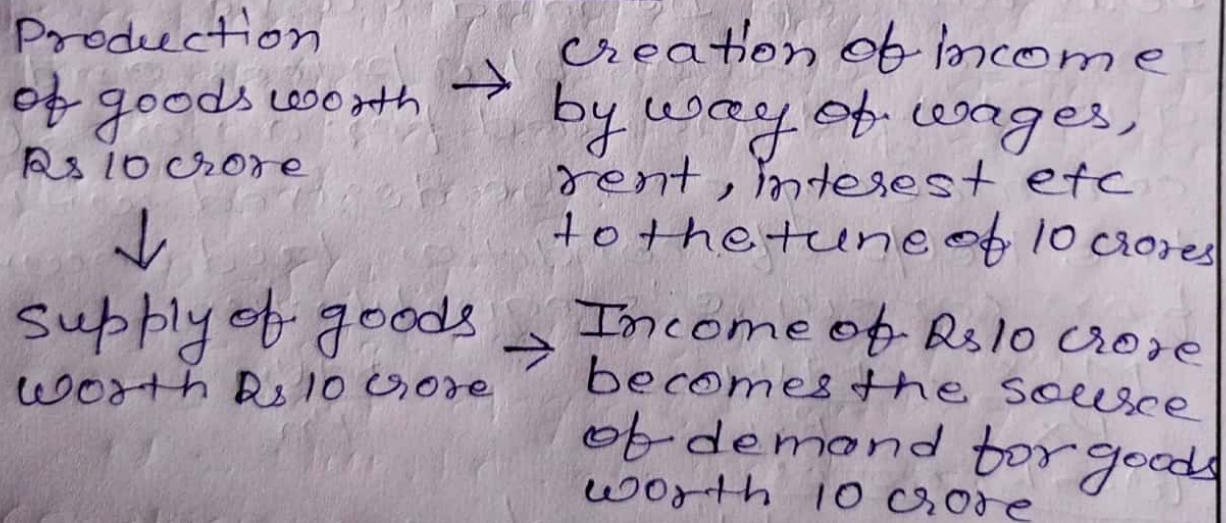 Production
of goods worth
Rs 10 crore
→
creation of income
by way of wages,
rent, interest etc
to the tune of 10 crores
↓
Supply of goods
worth Rs 10 crore
→
Income of Rs 10 crore
becomes the source
of demand for goods
worth 10 crore